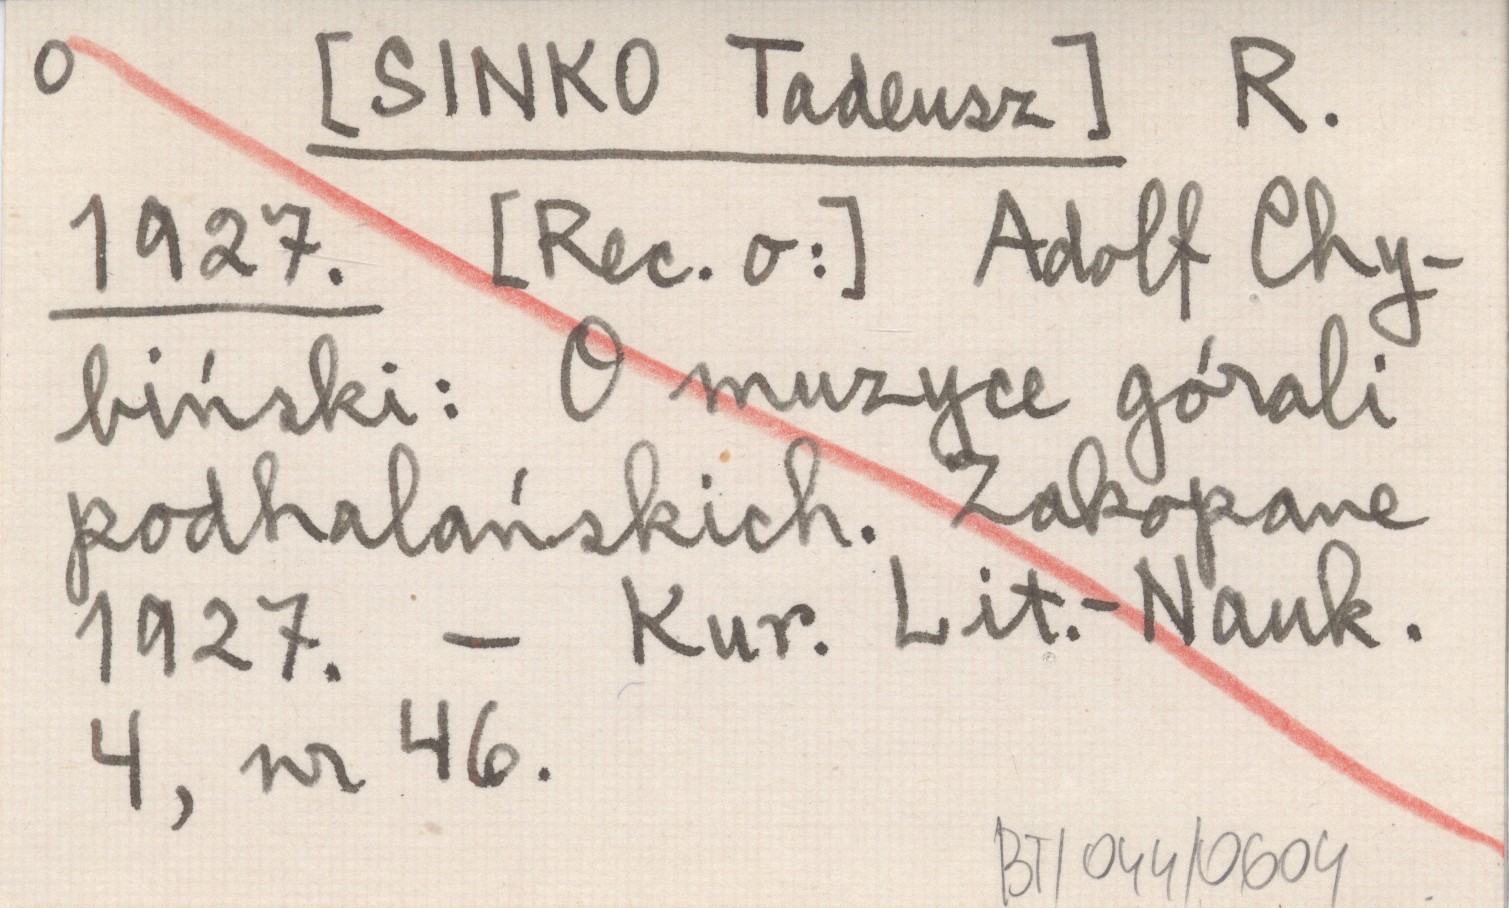 o [SINKO Tadeusz] R.
1927. [Rec. o:] Adolf Chy-
biński: O muzyce górali
podhalańskich. Zakopane
1927. — Kur. Lit.-Nauk.
4, nr 46.
BT/044/0604